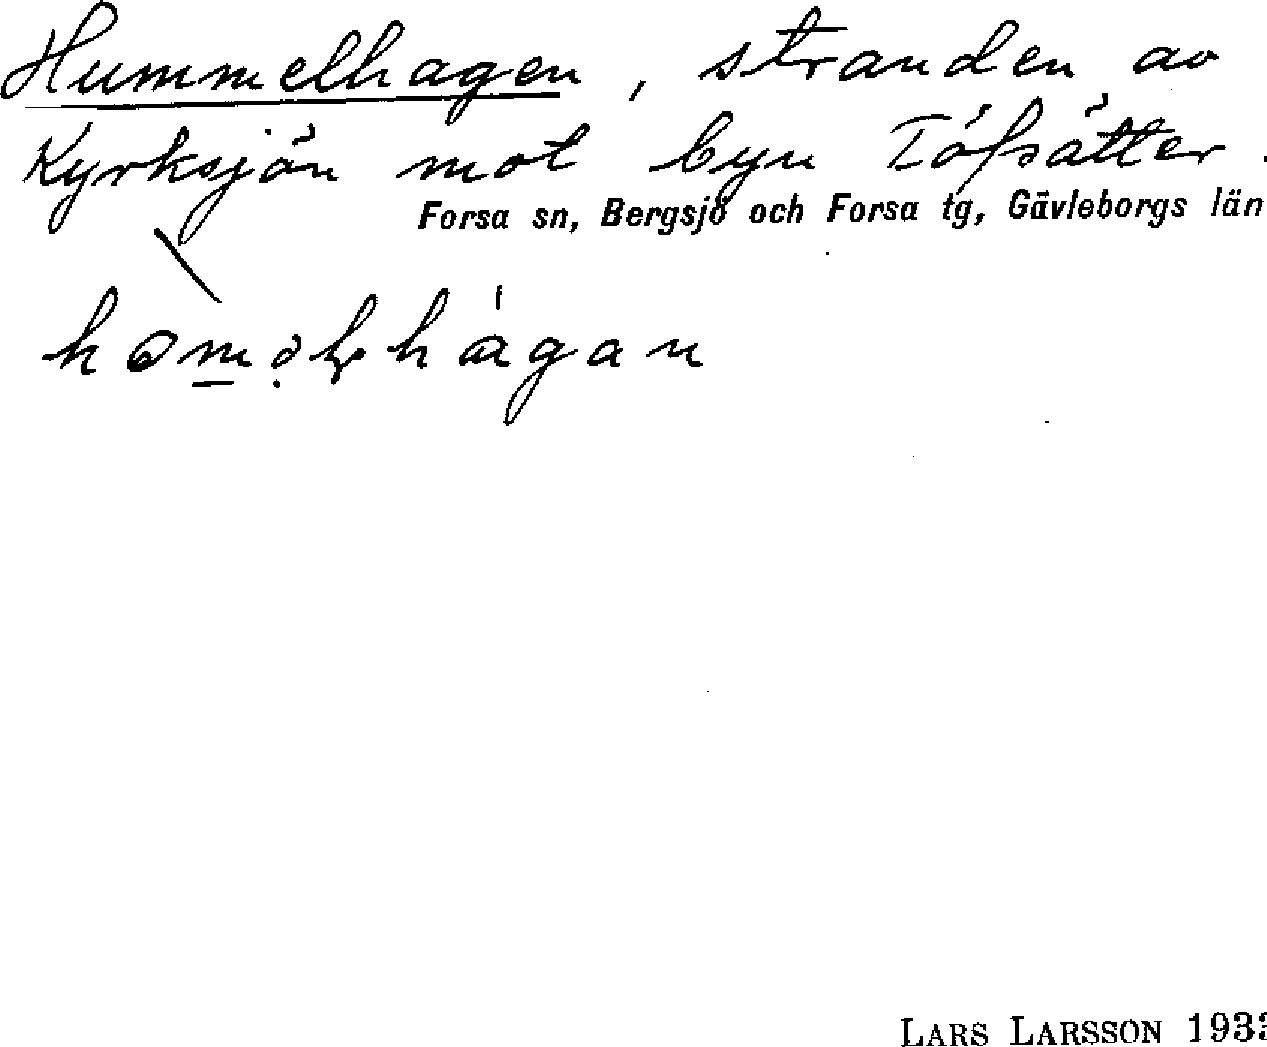 Hummelhagen, stranden av
Kyrksjön mot byn Tófsätter.
Forsa sn, Bergsjö och Forsa tg, Gävleborgs län
LARS LARSSON 193